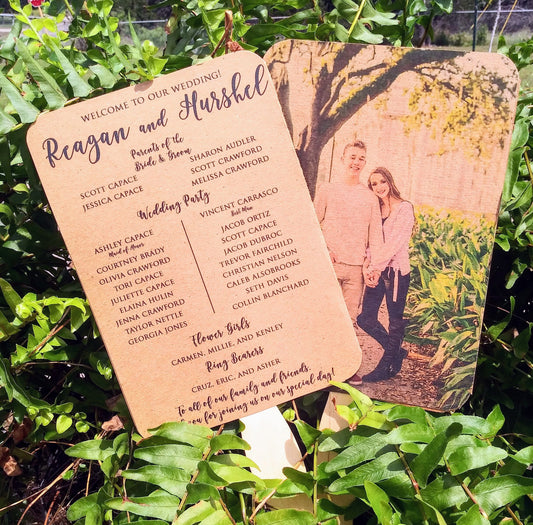 WELCOME TO OUR WEDDING!
Reagan and Hurshel
Parents of the
Bride & Groom
SCOTT CAPACE
JESSICA CAPACE
SHARON AUDLER
SCOTT CRAWFORD
MELISSA CRAWFORD
Wedding Party
ASHLEY CAPACE
Maid of Honor
COURTNEY BRADY
OLIVIA CRAWFORD
TORI CAPACE
JULIETTE CAPACE
ELAINA HULIN
JENNA CRAWFORD
TAYLOR NETTLE
GEORGIA JONES
VINCENT CARRASCO
Best Man
JACOB ORTIZ
SCOTT CAPACE
JACOB DUBROC
TREVOR FAIRCHILD
CHRISTIAN NELSON
CALEB ALSOBROOKS
SETH DAVIS
COLLIN BLANCHARD
Flower Girls
CARMEN, MILLIE, AND KENLEY
Ring Bearers
CRUZ, ERIC, AND ASHER
To all of our family and friends,
you for joining us on our special day!